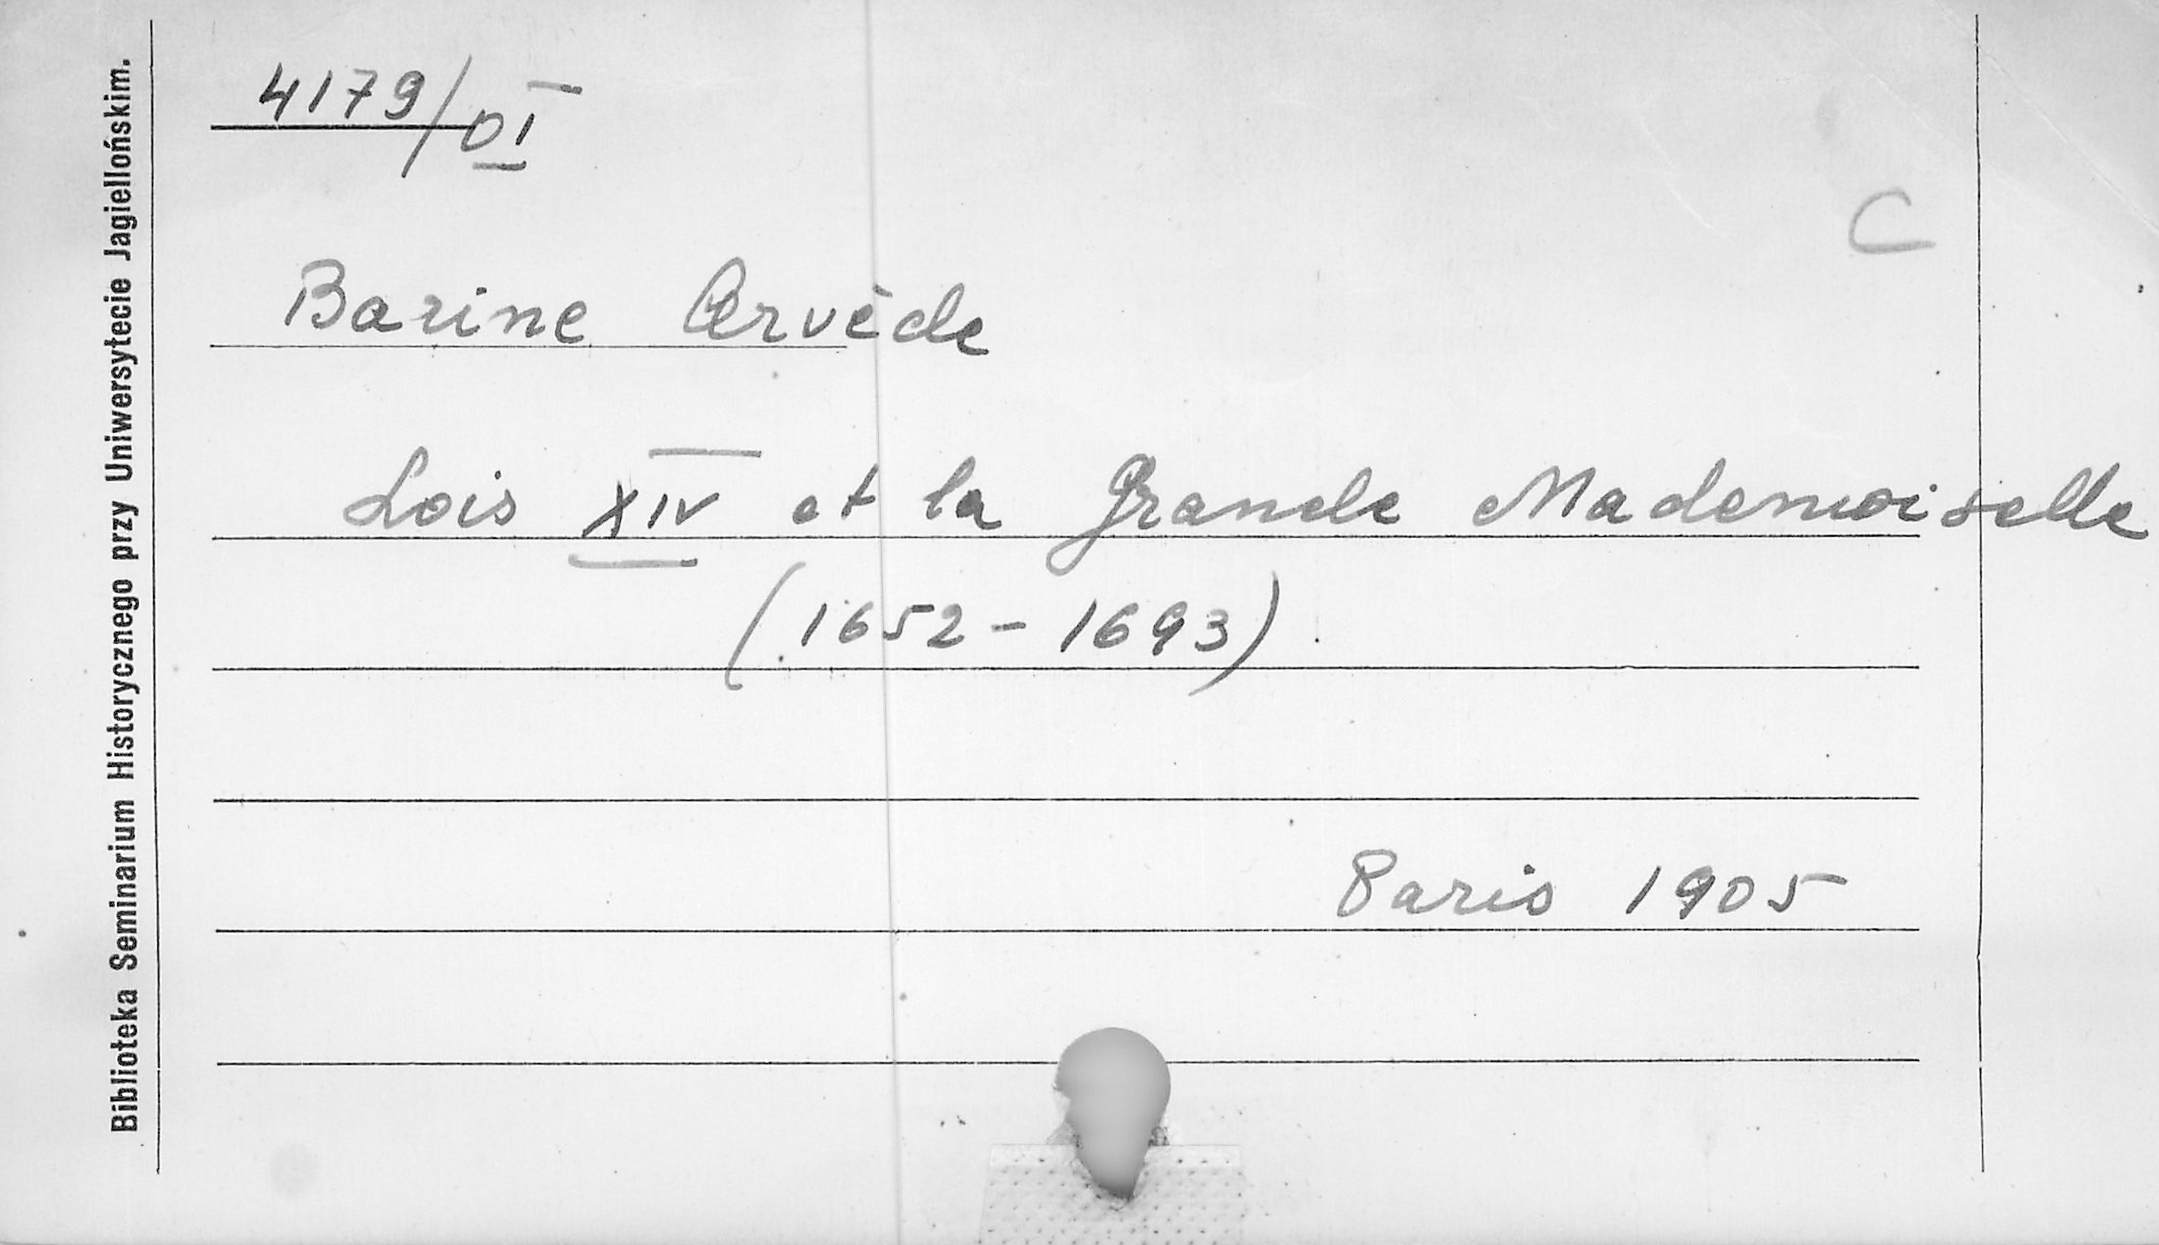 4179/OI
C
Barine Arvède
Lois XIV et la Grande Mademoiselle
(1652-1693)
Paris 1905
Biblioteka Seminarium Historycznego przy Uniwersytecie Jagiellońskim.